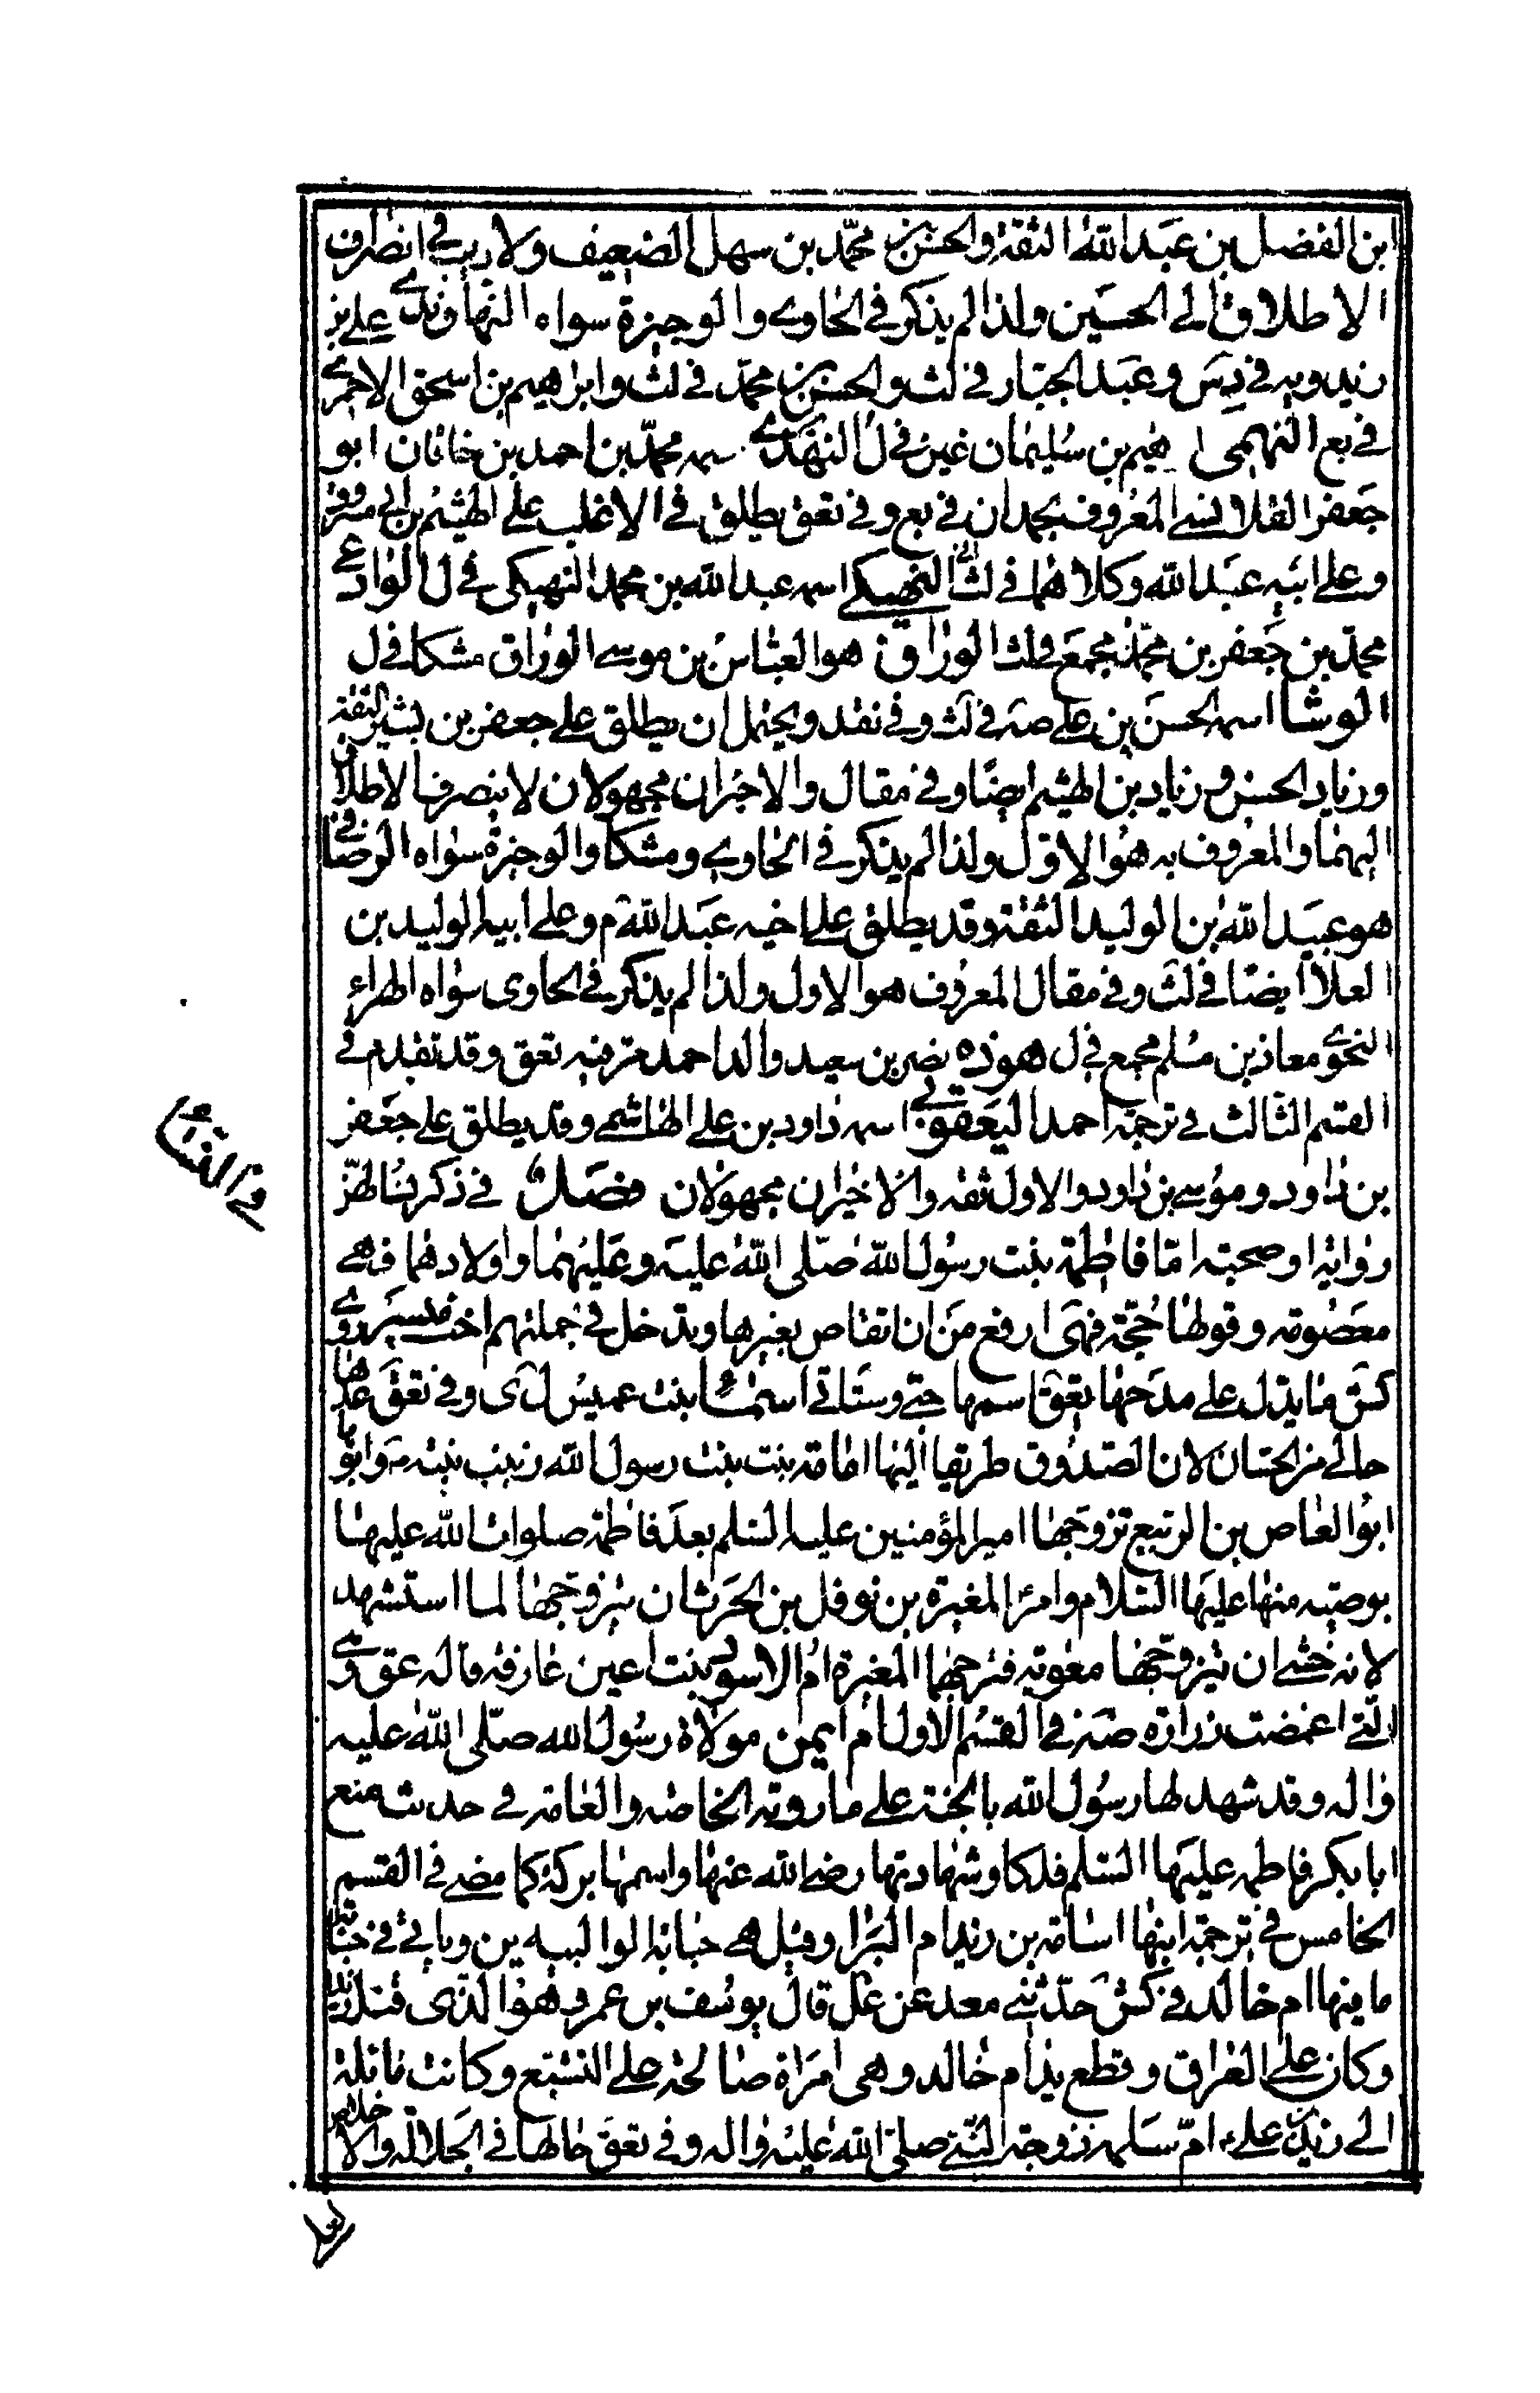 ابن الفضل بن عبد الله الثقة والحسن بن محمد بن سهل الضعيف ولا ريب في انصراف
الاطلاق الى الحسين ولذا لم يذكر في الحاوي والوجيزة سواه النهاوندي علي بن
زيدويه في دس وعبد الجبار في لث والحسن بن محمد في لث وابراهيم بن اسحق الاحمري
في يع النهمي ا هيم بن سليمان غير في ل النهدي سمه محمد بن احمد بن خاقان ابو
جعفر القلانسي المعروف بحمدان في يع وفي تعق يطلق في الاغلب على الهيثم بن ابي مسروق
وعلى ابيه عبد الله وكلاهما في لث النهيكي اسمه عبد الله بن محمد النهيكي في ل الوادعي
محمد بن جعفر بن محمد مجمع في لث الوراق هو العباس بن موسى الوراق مشكا في ل
الوشا اسمه الحسن بن علي صه في لث وفي نقد ويحتمل ان يطلق على جعفر بن بشير الثقة
وزياد الحسن وزياد بن الهيثم ايضا وفي مقال والاخران مجهولان لا ينصرف الاطلاق
اليهما والمعروف به هو الاول ولذا لم يذكر في الحاوي ومشكا والوجيزة سواه الوصافي
هو عبيد الله بن الوليد الثقة وقد يطلق على اخيه عبد الله م وعلى ابيه الوليد بن
العلا ايضا في لث وفي مقال المعروف هو الاول ولذا لم يذكر في الحاوى سواه الهراء
النحوي معاذ بن مسلم مجمع في ل هوذه نضر بن سعيد والد احمد عرفيه تعق وقد تقدم في
القسم الثالث في ترجمة احمد اليعقوبي اسمه داود بن علي الهاشمي وقد يطلق على جعفر
بن داود وموسى بن داود والاول ثقه والاخيران مجهولان فصل في ذكر نسا لهن
رواية او صحبته اما فاطمة بنت رسول الله صلى الله عليه وعليهما واولادهما فهي
معصومه وقولها حجة فهى ارفع من ان تقاس بغيرها ويدخل في جملتهم اخت ميسر روي
كش ما يدل على مدحها تعق اسمها حبى وستاتي اسما بنت عميس ل ى وفي تعق عدها
خالي من الحسان لان الصدوق طريقا اليها امامة بنت بنت رسول الله زينب بنته وابوها
ابو العاص بن الربيع تزوجها امير المؤمنين عليه السلم بعد فاطمة صلوات الله عليها
بوصيه منها عليها السلام وامر المغيرة بن نوفل بن الحرث ان يتزوجها لما استشهد
لانه خشي ان يتزوجها معوية فتزوجها المغيرة ام الاسود بنت اعين عارفة قاله عق وهي
التي اغمضت زرارة صه في القسم الاول ام ايمن مولاة رسول الله صلى الله عليه
واله وقد شهد لها رسول الله بالجنة على ما روته الخاصه والعامه في حديث منع
ابا بكر فاطمه عليها السلم فدكا وشهادتها رضى الله عنها واسمها بركة كما مضى في القسم
الخامس في ترجمة ابنها اسامة بن زيد ام البرا وقيل هي حبابة الوالبيه ين وياتي في حبابة
ما فيها ام خالد في كش حدثني معد عن عل قال يوسف بن عمر وهو الذى قتل زيدا
وكان على العراق وقطع يد ام خالد وهى امراة صالحة على التشيع وكانت مائلة
الى زيد بن علي ام سلمه زوجة النبي صلى الله عليه واله وفي تعق حالها في الجلالة والاخلاص